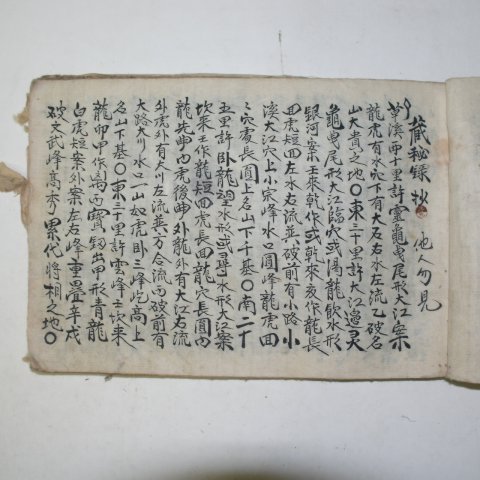 藏秘錄抄 他人勿見
草溪西十里許靈龜曳尾形大江案
龍虎有水穴下有大石右水左流乙破名
山大貴之地〇東三十里許大江邊灵
龜曳尾形大江臨穴或渴龍飲水形
銀河案壬來乾作或乾來亥作龍長
回虎短回左水右流巽破前有小路小
溪大江穴上小宗峰水口圓峰龍虎回
〻穴處長圓上名山下千基〇南二十
五里許卧龍望水形或尋水形大江案
坎來壬作龍短回虎長回龍穴長圓內
龍先曲內虎後曲外龍外有大江右流
外虎外有大川左流巽方合流丙破前有
大路大川水口一山如虎卧三峰屹高上
名山下基〇東三十里許雲峰士坎來
龍卯甲作寶釼出甲形青龍
白虎短案外案左右峰重疊辛戌
破文武峰高秀累代將相之地〇